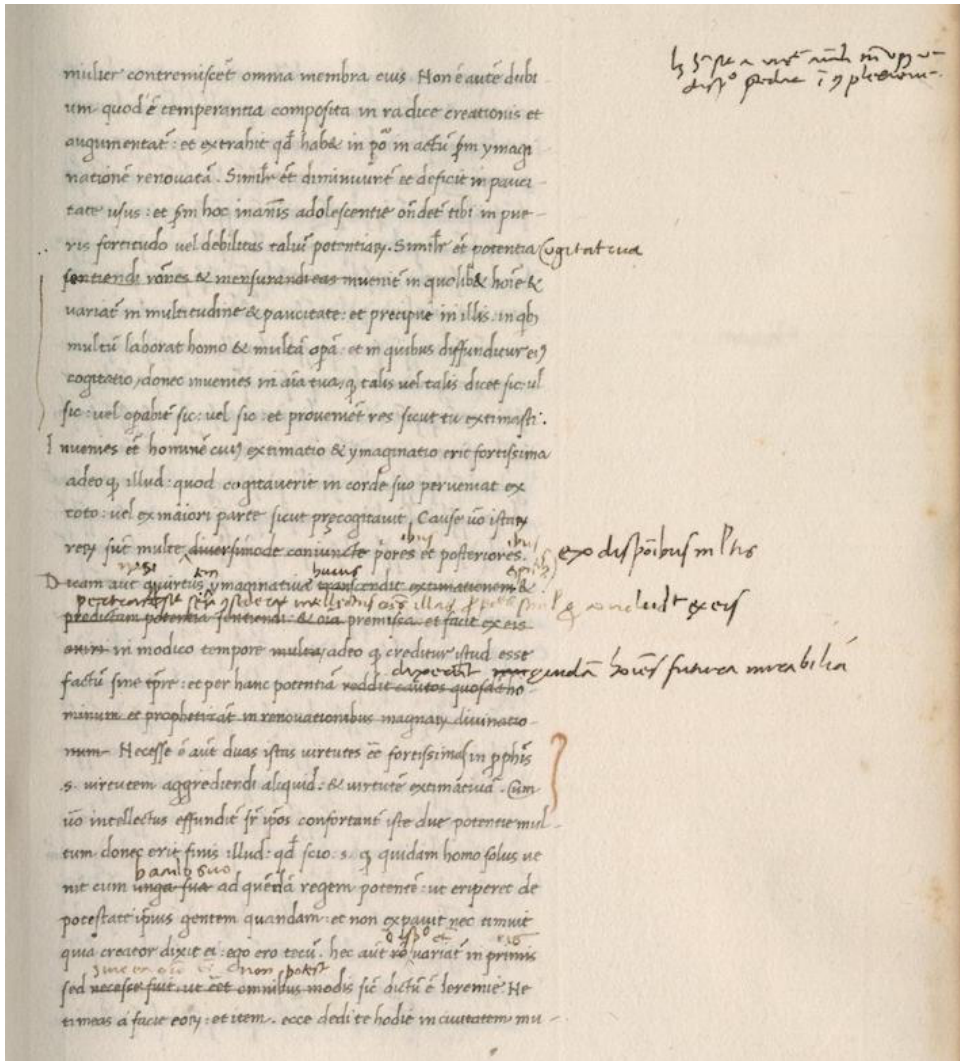 mulier contremiscet̃ omnia membra eius. Non ẽ autẽ dubi
um quod ẽ temperantia composita in radice creationis et
augumentat̃: et extrahit qd̃ hab& in põ in actũ s̃m ymagi
nationẽ renovatã. Simil̃r et̃ diminuunt̃ et deficit in pauci-
tate usus: et s̃m hoc inanĩs adolescentie oñdet tibi in pue-
ris fortitudo vel debilitas taliuʒ potentiaꝝ. Simil̃r et̃ potentia Cogitativa
sentiendi rões & mensurandi eas invenit̃ in quolib& hoĩe &
variat̃ in multitudine & paucitate: et precipue in illis. in qb9
multũ laborat homo & multã opã: et in quibus diffunditur ei9
cogitatio, donec invenies in aĩa tua, q talis vel talis dicet sic: ul
sic: vel opabit̃ sic: vel sic: et proveniet̃ res sicut tu extimasti.
Invenies et̃ hominẽ cui9 extimatio & ymaginatio erit fortissima
adeo q illud: quod cogitaverit in corde suo perveniat ex
toto: vel ex maiori parte sicut precogitavit. Cause ũo istaꝝ
reꝝ sũt multe, diversimode coniuncte põres et posteriores. ex dispõibus ml̃tis
Dicam aut̃ q virtus ymaginativa transcendit extimationem &
huius
predictam potentiã sentiendi: & oĩa premissa. et facit ex eis & concludit̃ ex eis
oriri in modico tempore multa, adeo q creditur istud esse
factũ sine tp̃re: et per hanc potentiã reddit cautos quosdã ho- dixerũt quidã hoĩes futura mirabiliã
minum et prophetizãt in renovationibus magnaꝝ divinatio-
num. Necesse ẽ aut̃ duas istas virtutes eẽ fortissimas in p̃phĩs
.s. virtutem aggrediendi aliquid: & virtutẽ extimativã. Cum
ũo intellectus effundit̃ sr̃ ip̃os confortant̃ iste due potentie mul-
tum donec erit finis illud: qd̃ scio .s. q quidam homo solus ve
baculo suo
nit cum virga sua ad quendã regem potentẽ: ut eriperet de
potestate ip̃ius gentem quandam: et non expavit nec timuit
quia creator dixit ei: ego ero tecũ. hec aut̃ rõ variat̃ in primis
non potest
sed necesse fuit. ut eẽt omnibus modis sic̃ dictũ ẽ Ieremie: Ne
timeas a facie eoꝝ: et item. ecce dedi te hodie in civitatem mu-